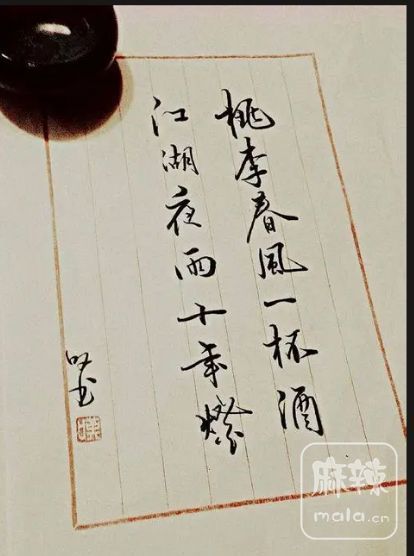 桃李春風一杯酒
江湖夜雨十年燈
麻辣
mala.cn